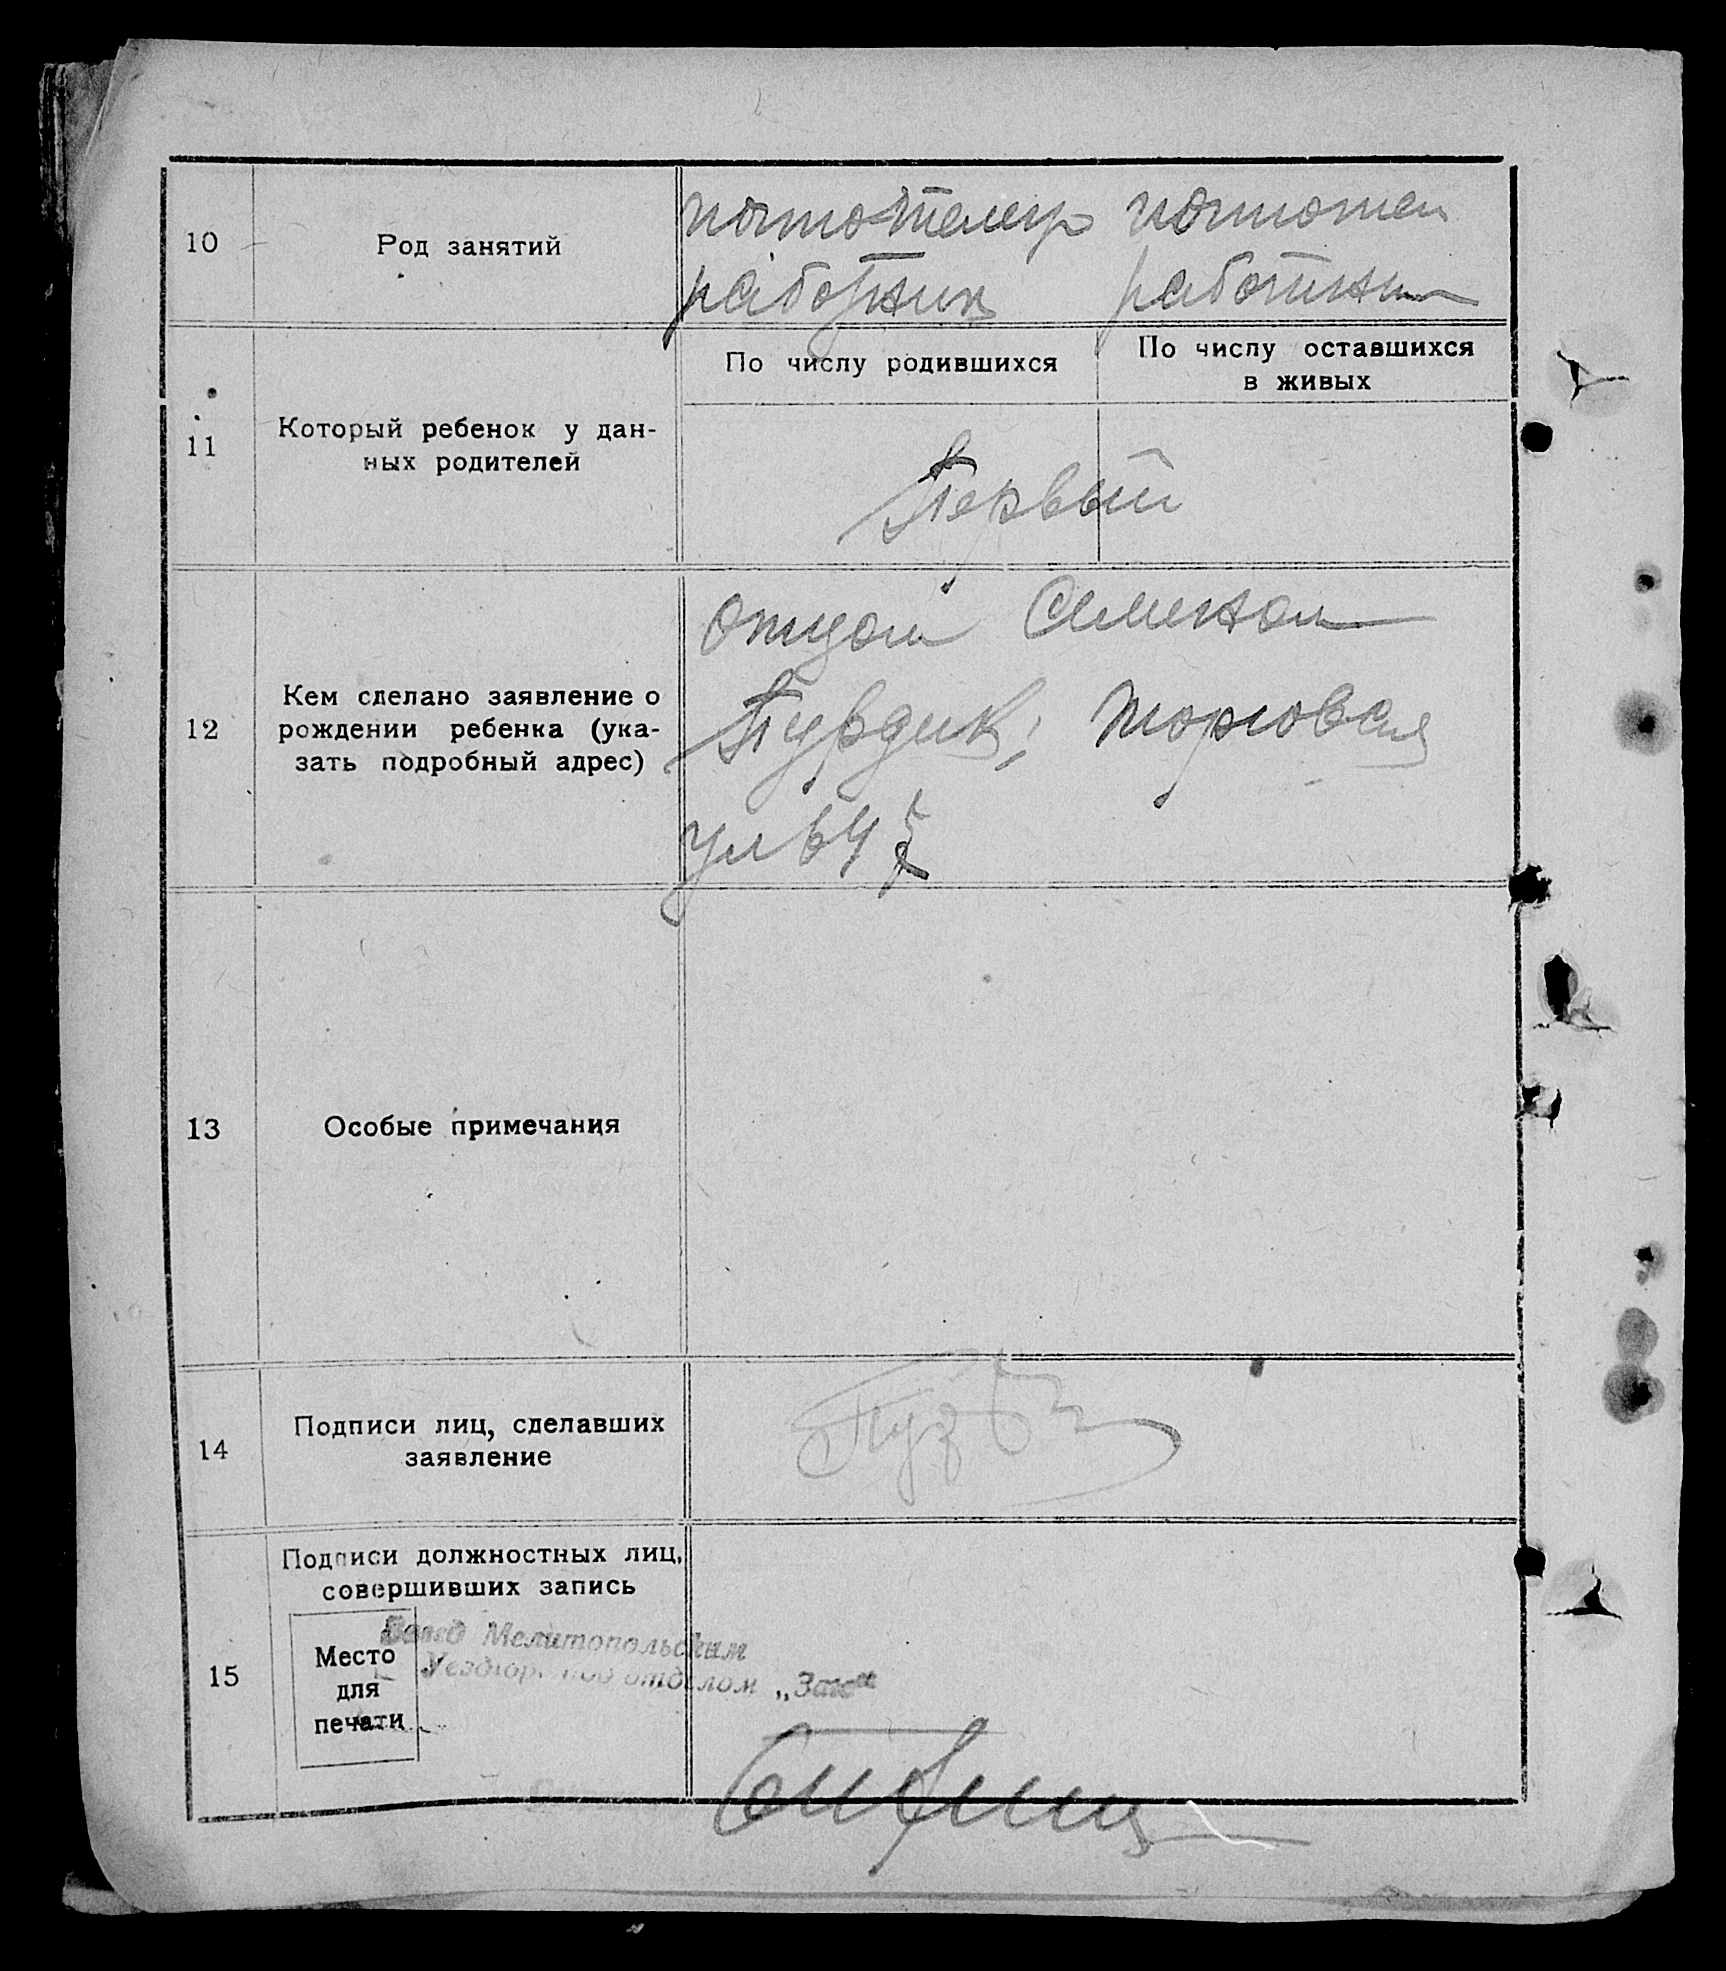 10
Род занятий
почтотелегр
почтотел
работник
работник
11
Который ребенок у дан-
ных родителей
По числу родившихся
По числу оставшихся
в живых
Первый
12
Кем сделано заявление о
рождении ребенка (ука-
зать подробный адрес)
отцом Семеном
торговая
ул 64
13
Особые примечания
14
Подписи лиц, сделавших
заявление
15
Подписи должностных лиц,
совершивших запись
Место
для
печати
Мелитопольским
отделом „Загс“